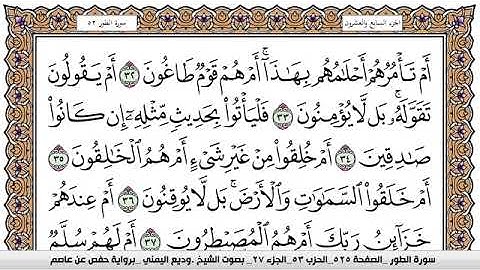 الجزء السابع والعشرون
سورة الطور ٥٢
أَمْ تَأْمُرُهُمْ أَحْلَامُهُم بِهَٰذَا ۚ أَمْ هُمْ قَوْمٌ طَاغُونَ ٣٢ أَمْ يَقُولُونَ
تَقَوَّلَهُ ۚ بَل لَّا يُؤْمِنُونَ ٣٣ فَلْيَأْتُوا بِحَدِيثٍ مِّثْلِهِ إِن كَانُوا
صَادِقِينَ ٣٤ أَمْ خُلِقُوا مِنْ غَيْرِ شَيْءٍ أَمْ هُمُ الْخَالِقُونَ ٣٥
أَمْ خَلَقُوا السَّمَاوَاتِ وَالْأَرْضَ ۚ بَل لَّا يُوقِنُونَ ٣٦ أَمْ عِندَهُمْ
خَزَائِنُ رَبِّكَ أَمْ هُمُ الْمُصَيْطِرُونَ ٣٧ أَمْ لَهُمْ سُلَّمٌ
سورة الطور _الصفحة ٥٢٥_الحزب ٥٣_الجزء ٢٧_ بصوت الشيخ _وديع اليمني _برواية حفص عن عاصم